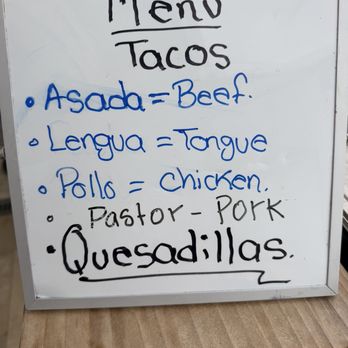 Menu
Tacos
• Asada = Beef.
• Lengua = Tongue
• Pollo = Chicken.
• Pastor - Pork
• Quesadillas.